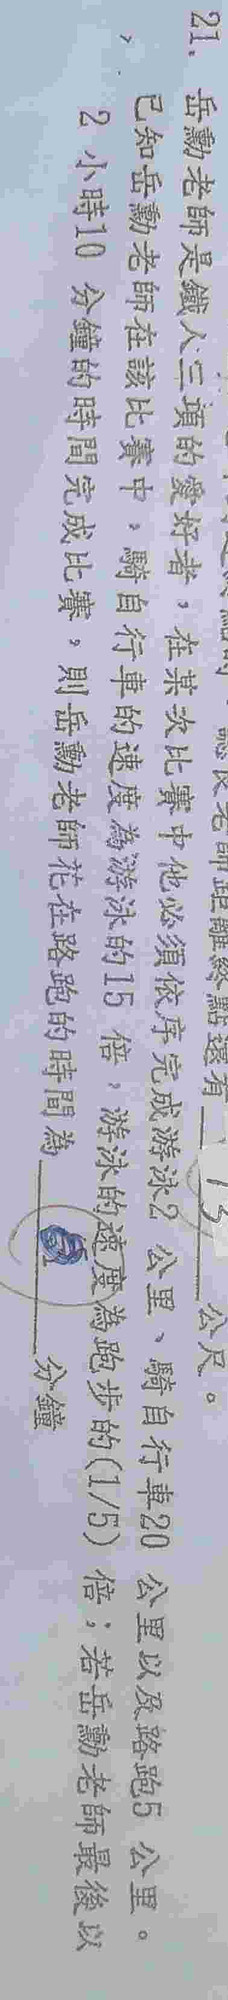 老師距離終點還有 13 公尺。
21. 岳勳老師是鐵人三項的愛好者,在某次比賽中他必須依序完成游泳2 公里、騎自行車20 公里以及路跑5 公里。
已知岳勳老師在該比賽中,騎自行車的速度為游泳的15 倍,游泳的速度為跑步的(1/5) 倍;若岳勳老師最後以
2 小時10 分鐘的時間完成比賽,則岳勳老師花在路跑的時間為 分鐘